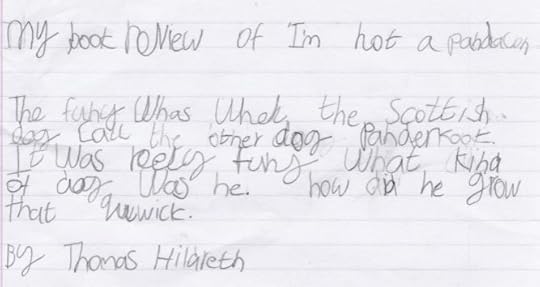 My book roview of I'm not a pandacon
The funy Whas When the Scottish.
dog call the other dog Panderkoot.
It Was reely funy What kind
of dog Was he. how did he grow
that quwick.
By Thomas Hildreth